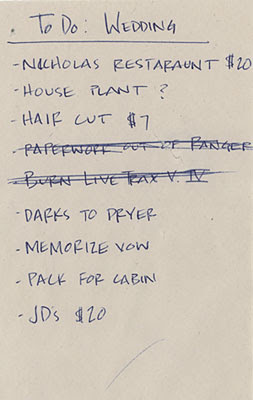 · TO DO: WEDDING
- NICHOLAS RESTARAUNT $20
- HOUSE PLANT ?
- HAIR CUT $7
- PAPERWORK OUT OF RANGER
- BURN LIVE TRAX V. IV
- DARKS TO DRYER
- MEMORIZE VOW
- PACK FOR CABIN
- JDs $20